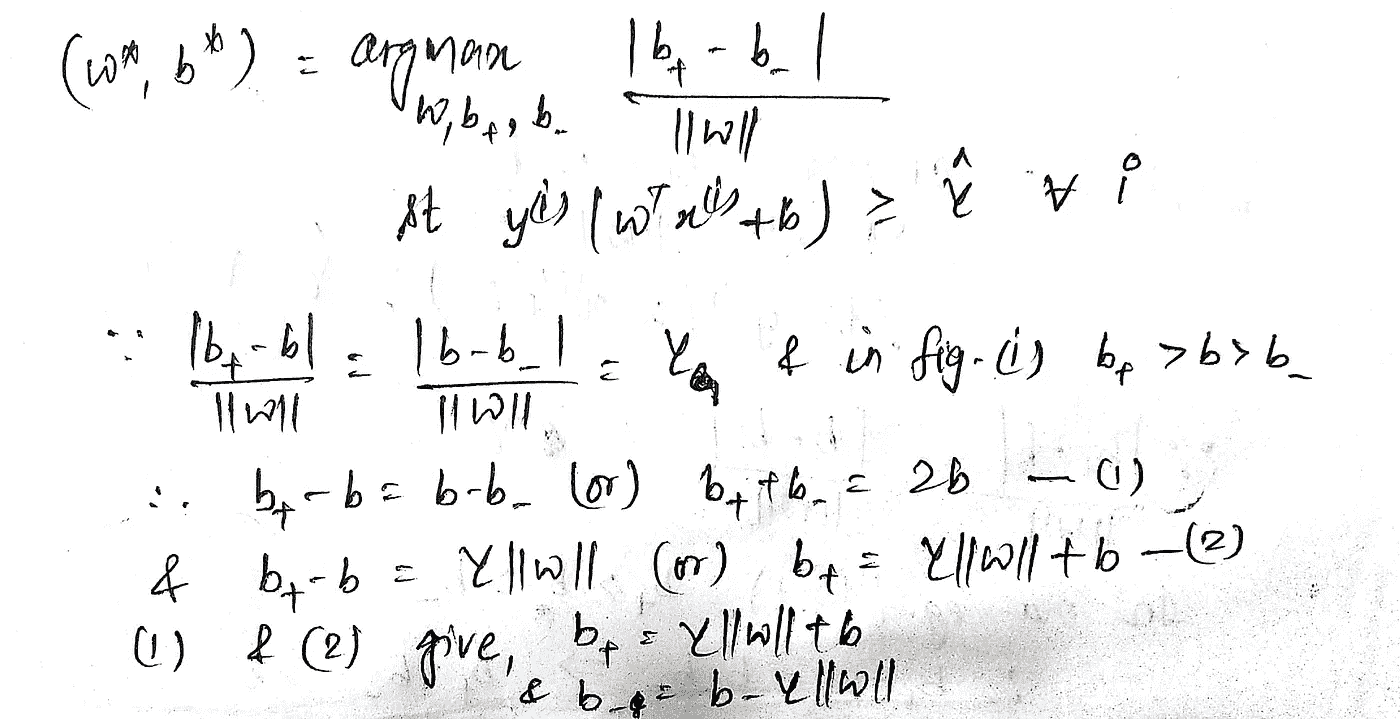 (w*, b*) = argmax_{w, b₊, b₋} |b₊ - b₋| / ||w||
st y⁽ⁱ⁾ (wᵀ x⁽ⁱ⁾ + b) ≥ γ̂ ∀ i
∵ |b₊ - b| / ||w|| = |b - b₋| / ||w|| = γ & in fig. (i) b₊ > b > b₋
∴ b₊ - b = b - b₋ (or) b₊ + b₋ = 2b — (1)
& b₊ - b = γ||w|| (or) b₊ = γ||w|| + b — (2)
(1) & (2) give, b₊ = γ||w|| + b
& b₋ = b - γ||w||